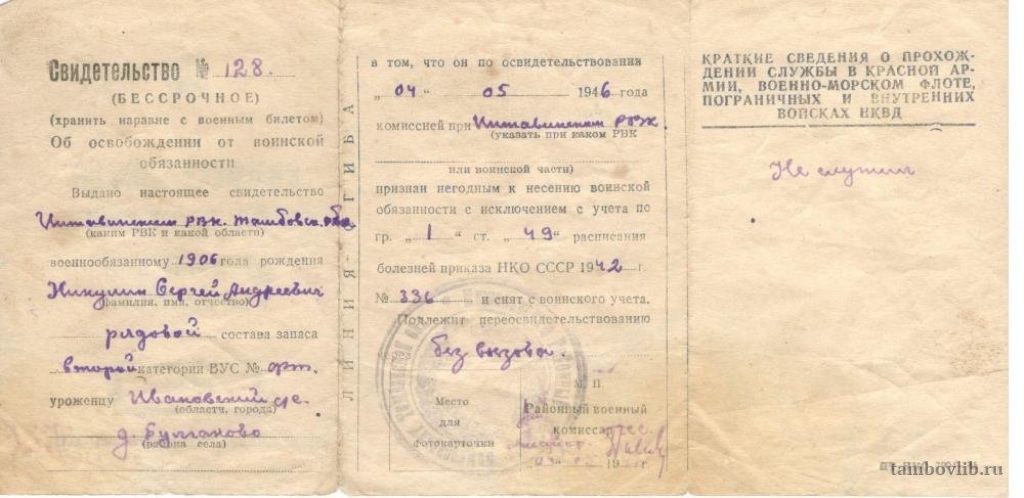 Свидетельство № 128.
(БЕССРОЧНОЕ)
(хранить наравне с военным билетом)
Об освобождении от воинской
обязанности
Выдано настоящее свидетельство
РВК. Тамбовск.
(каким РВК и какой области)
военнообязанному 1906 года рождения
Никулин Сергей Андреевич
(фамилия, имя, отчество)
рядовой состава запаса
второй категории ВУС №
уроженцу Ивановский
(области, города)
д. Булгаково
(района села)
ЛИНИЯ СГИБА
в том, что он по освидетельствования
„04" 05 1946 года
комиссией при РВК
(указать при каком РВК
или воинской части)
признан негодным к несению воинской
обязанности с исключением с учета по
гр. „1" ст. „49" расписания
болезней приказа НКО СССР 1942 г.
№ 336 и снят с воинского учета.
Подлежит переосвидетельствованию
без вызова.
Место
для
фотокарточки
М П
Районный военный
комиссар
КРАТКИЕ СВЕДЕНИЯ О ПРОХОЖ-
ДЕНИИ СЛУЖБЫ В КРАСНОЙ АР-
МИИ, ВОЕННО-МОРСКОМ ФЛОТЕ,
ПОГРАНИЧНЫХ И ВНУТРЕННИХ
ВОЙСКАХ НКВД
Не служил
tambovlib.ru